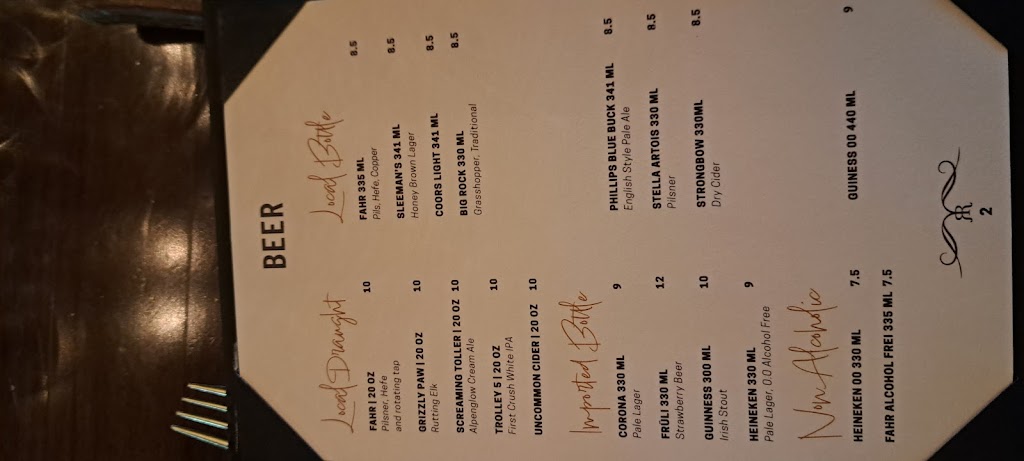 BEER
Local Draught
FAHR | 20 OZ 10
Pilsner, Hefe
and rotating tap
GRIZZLY PAW | 20 OZ 10
Rutting Elk
SCREAMING TOLLER | 20 OZ 10
Alpenglow Cream Ale
TROLLEY 5 | 20 OZ 10
First Crush White IPA
UNCOMMON CIDER | 20 OZ 10
Local Bottle
FAHR 335 ML 8.5
Pils, Hefe, Copper
SLEEMAN'S 341 ML 8.5
Honey Brown Lager
COORS LIGHT 341 ML 8.5
BIG ROCK 330 ML 8.5
Grasshopper, Traditional
Imported Bottle
CORONA 330 ML 9
Pale Lager
FRÜLI 330 ML 12
Strawberry Beer
GUINNESS 300 ML 10
Irish Stout
HEINEKEN 330 ML 9
Pale Lager, 0.0 Alcohol Free
PHILLIPS BLUE BUCK 341 ML 8.5
English Style Pale Ale
STELLA ARTOIS 330 ML 8.5
Pilsner
STRONGBOW 330ML 8.5
Dry Cider
Non Alcoholic
HEINEKEN 00 330 ML 7.5
FAHR ALCOHOL FREI 335 ML 7.5
GUINESS 00 440 ML 9
RR
2